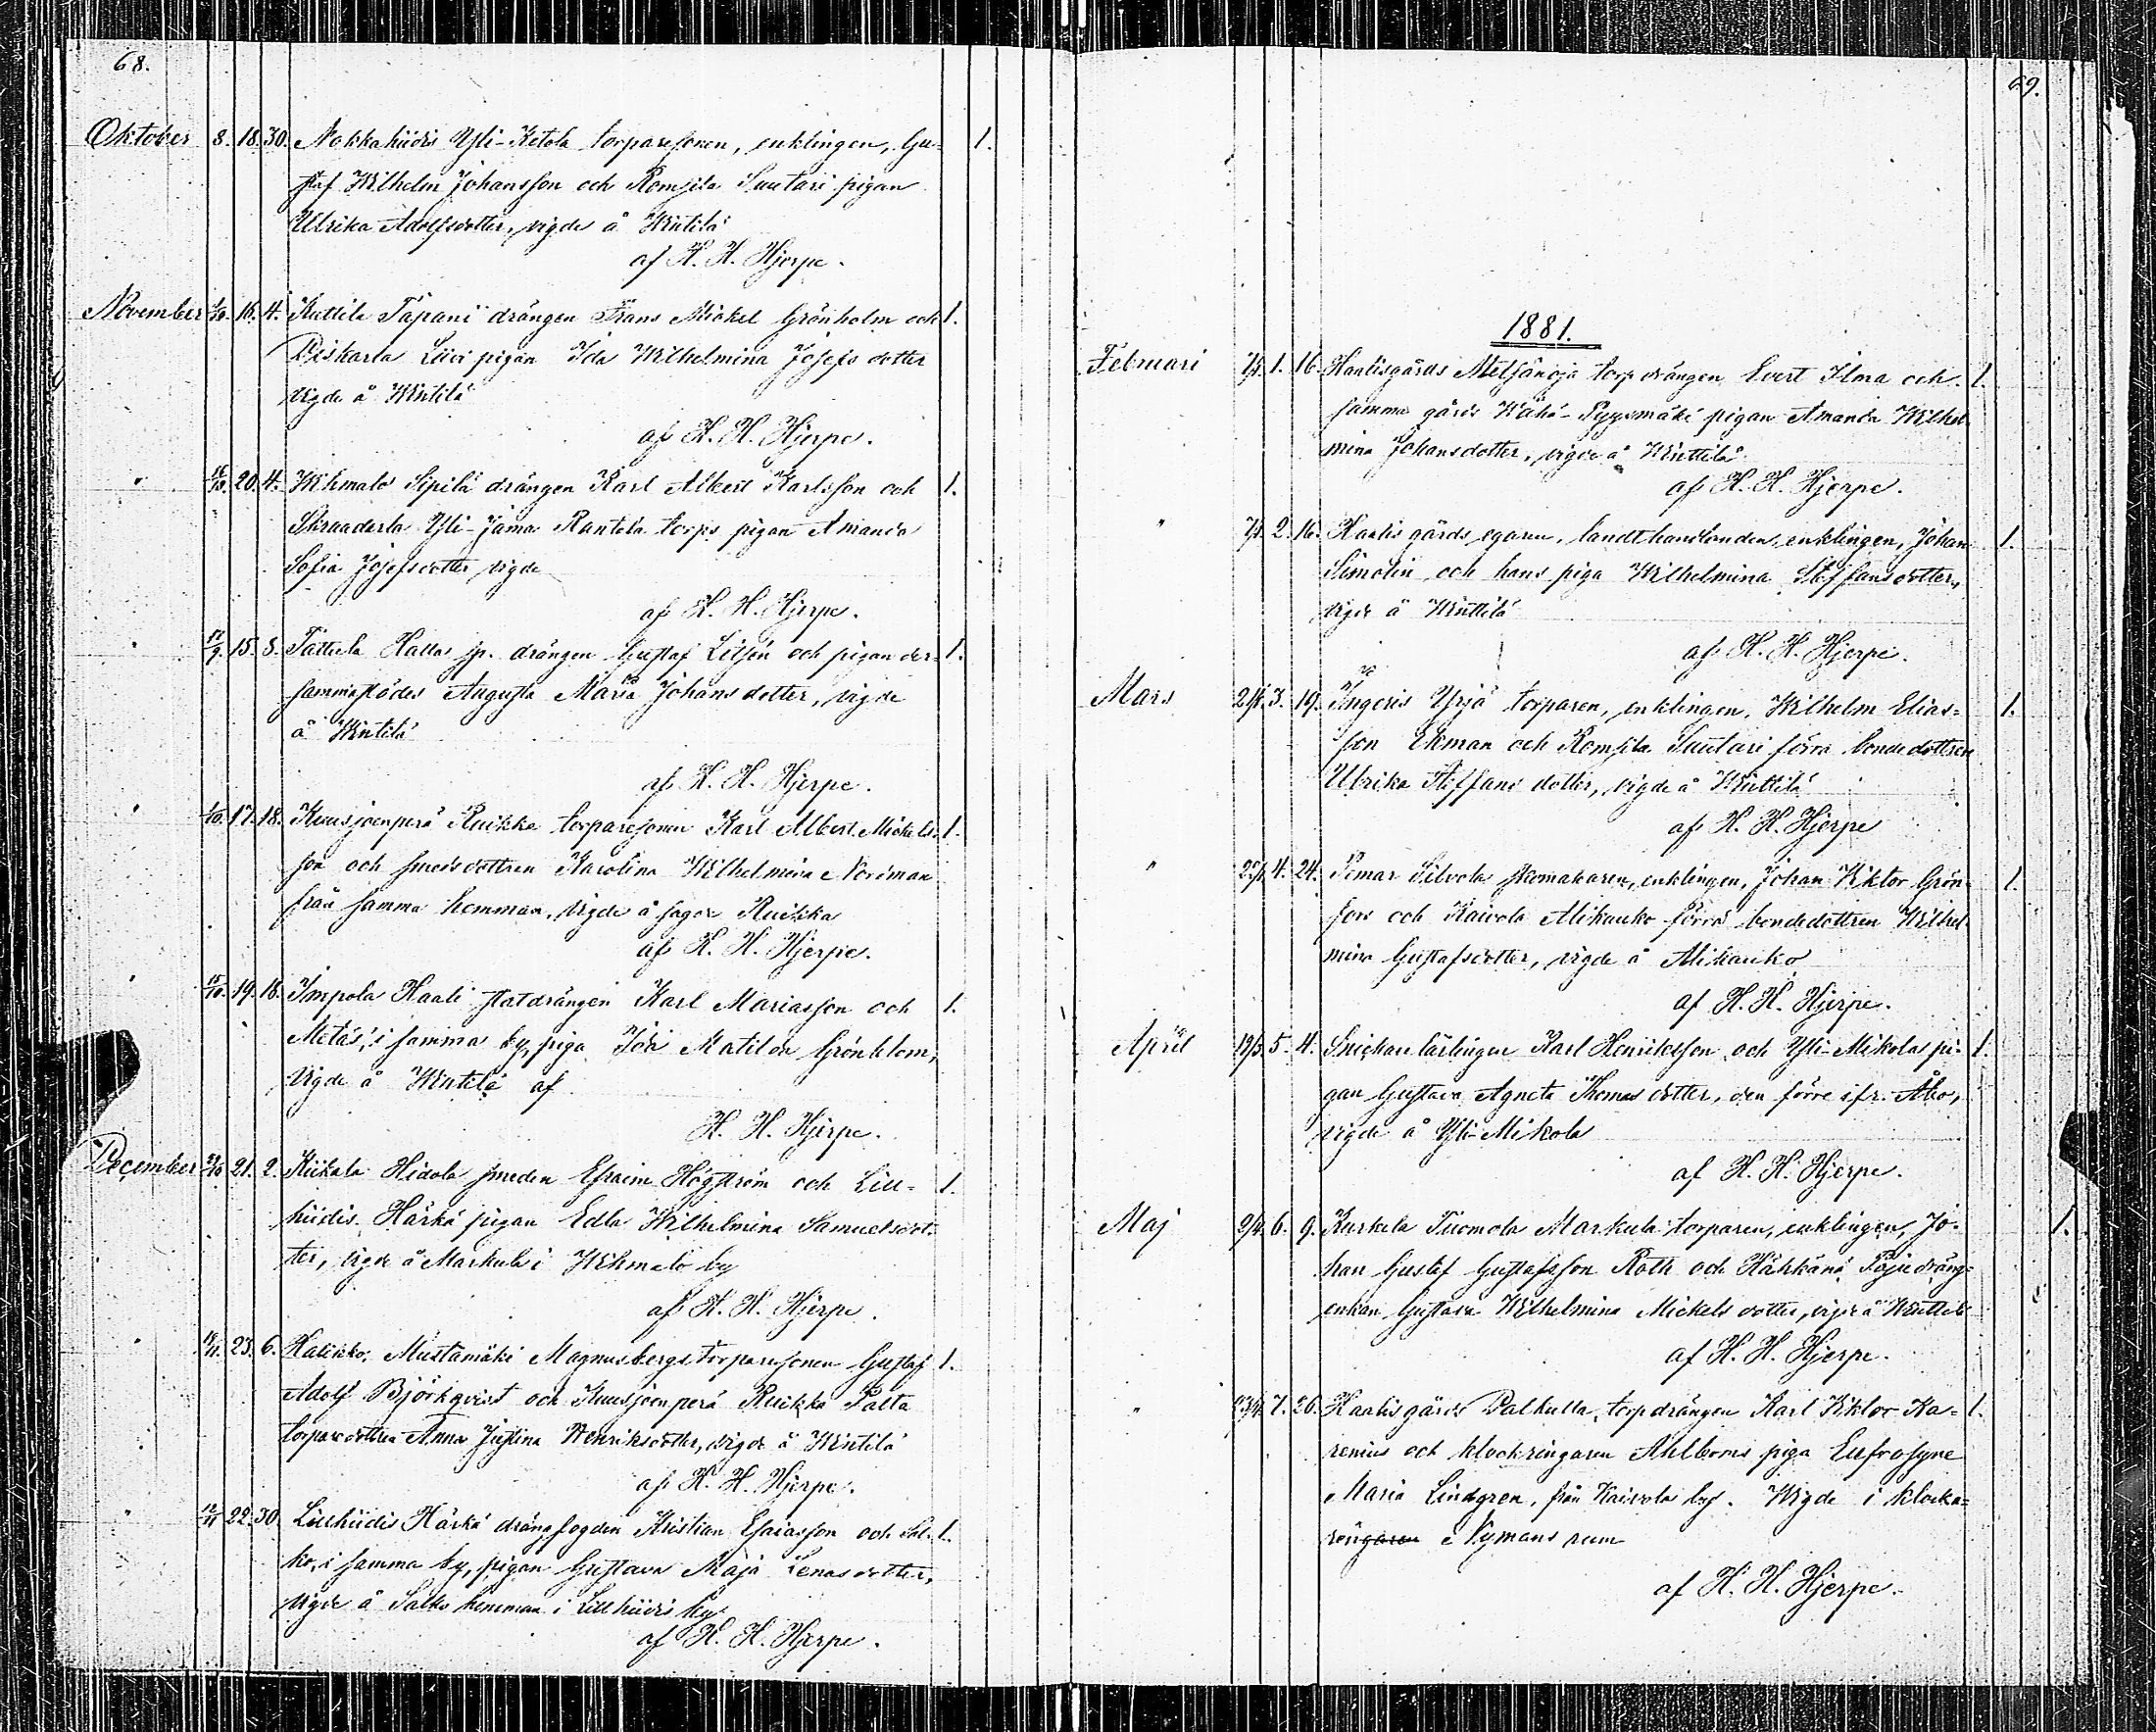 68.
Oktober 8. 18. 30. Nokkahiidis Yli-Ketola torparesonen, enklingen, Gu- 1.
staf Wilhelm Johansson och Romsila Suutari pigan
Ulrika Adolfsdotter, vigde å Wintilä
af H. H. Hjerpe.
November 16. 4. Kuttila Tapani drängen Frans Mickel Grönholm och 1.
Piskarla Liici pigan Ida Wilhelmina Josefs dotter
vigde å Wintilä
af H. H. Hjerpe.
" 16/10. 20. 4. Wihmalo Sipilä drängen Karl Albert Karlsson och 1.
Skraaderla Yli-Jama Rantala torps pigan Amanda
Sofia Josefsdotter vigde
af H. H. Hjerpe.
" 17/9. 15. 8. Tatterla Hallas sp. drängen Gustaf Litsén och pigan der- 1.
sammastädes Augusta Maria Johans dotter, vigde
å Wintilä
af H. H. Hjerpe.
" 1/10. 17. 18. Kuusjoenperä Ruikka torparesonen Karl Albert Mickels- 1.
son och smedsdottren Karolina Wilhelmina Nordman
från samma hemman, vigde å sagde Ruikka
af H. H. Hjerpe.
" 15/10. 19. 18. Impola Haali statdrängen Karl Mariasson och 1.
Metäs, i samma by, piga Ida Matilda Grönblom,
vigde å Wintilä af
H. H. Hjerpe.
December 21. 2. Kiikala Hidola smeden Efraim Högström och Lill- 1.
hiidis Härkä pigan Edla Wilhelmina Samuelsdot-
ter, vigde å Markula i Wihmalo by
af H. H. Hjerpe.
" 23. 6. Halikko, Mustamäki Magnusbergs torparesonen Gustaf 1.
Adolf Björkqvist och Kuusjoenperä Ruikka Palta
torparedottren Anna Justina Henriksdotter, vigde å Wintilä
af H. H. Hjerpe.
" 12/11 22. 30. Lillhiidis Härkä drängfogden Kristian Esaiasson och Sal- 1.
ko, i samma by, pigan Gustava Maja Lenasdotter,
vigde å Salko hemman i Lillhiidis by
af H. H. Hjerpe.
69.
1881.
Februari 1. 16. Haalisgårds Metsänoja torp drängen Evert Ilma och 1.
samma gårds Wähä-Pyysmäki pigan Amanda Wilhel-
mina Johansdotter, vigde å Winttilä
af H. H. Hjerpe.
" 2. 16. Haalis gårds egaren, landthandlanden, enklingen, Johan 1.
Simolin och hans piga Wilhelmina Steffansdotter,
vigde å Wintilä
af H. H. Hjerpe.
Mars 3. 19. Ingeris Yrjä torparen, enklingen, Wilhelm Elias- 1.
son Ekman och Romsila Suutari förra bondedottren
Ulrika Steffans dotter, vigde å Winttilä
af H. H. Hjerpe
" 4. 24. Pemar Silvola skomakaren, enklingen, Johan Wiktor Grön- 1.
fors och Kaivola Alikauko förra bondedottren Wilhel-
mina Gustafsdotter, vigde å Alikauko
af H. H. Hjerpe.
April 19/3. 5. 4. Snickarelärlingen Karl Henriksson och Yli-Mikolas pi- 1.
gan Gustava Agneta Thomas dotter, den förre ifr. Åbo,
vigde å Yli-Mikola
af H. H. Hjerpe.
Maj 9/4. 6. 9. Kurkela Tuomola Markula torparen, enklingen, Jo- 1.
han Gustaf Gustafsson Roth och Hähkänä Paju dräng-
enkan Gustava Wilhelmina Mickels dotter, vigde å Winttilä
af H. H. Hjerpe.
" 7. 26. Haalisgårds Palkulla torpdrängen Karl Wiktor Ka- 1.
renius och klockringaren Ahlboms piga Eufrosyne
Maria Lindgren, från Kaivola by. Wigde i klocka-
ren Nymans rum
af H. H. Hjerpe.